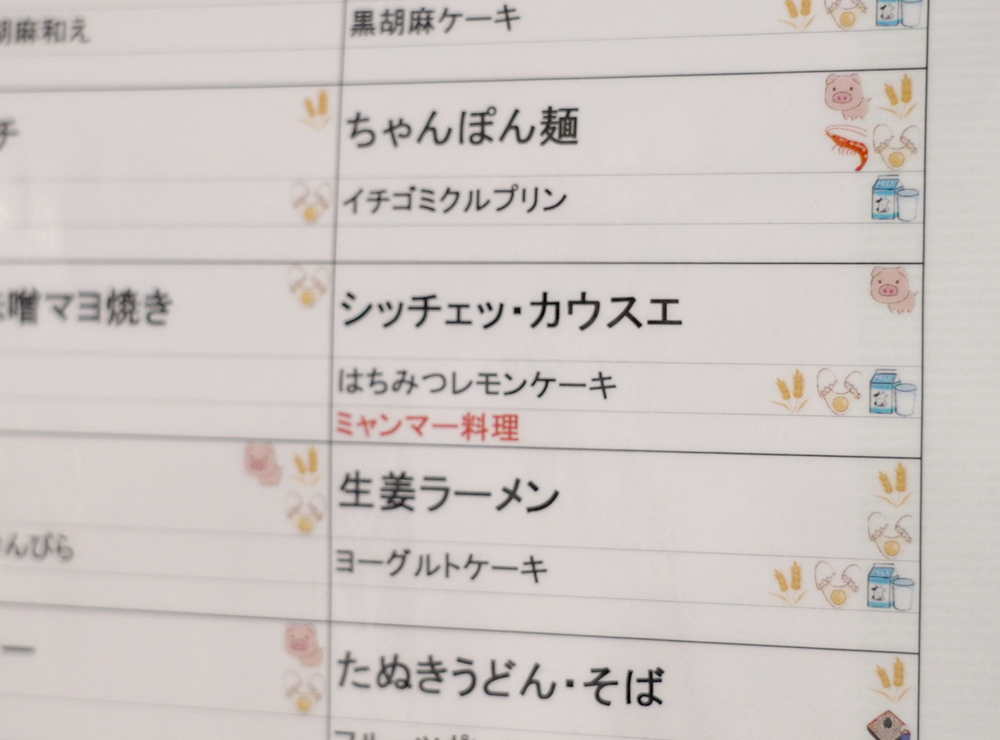 胡麻和え
黒胡麻ケーキ
チ
ちゃんぽん麺
イチゴミクルプリン
噌マヨ焼き
シッチェッ・カウスエ
はちみつレモンケーキ
ミャンマー料理
生姜ラーメン
んぴら
ヨーグルトケーキ
ー
たぬきうどん・そば